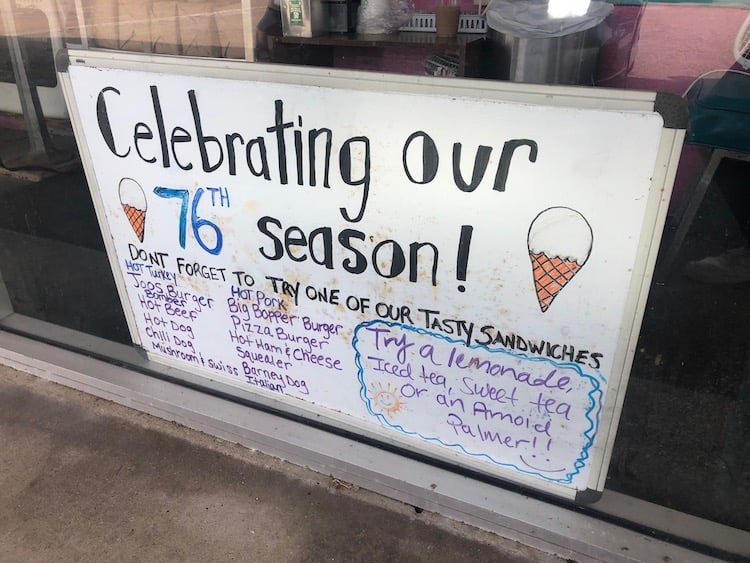 Celebrating our
76TH season!
DONT FORGET TO TRY ONE OF OUR TASTY SANDWICHES
HOT Turkey
Joos Burger
Bomber
Hot Beef
Hot Dog
Chili Dog
Mushroom & Swiss
HOT Pork
Big Bopper Burger
Pizza Burger
Hot Ham & Cheese
Squealer
Barney Dog
Italian
Try a lemonade,
Iced tea, Sweet tea
Or an Arnold
Palmer!!